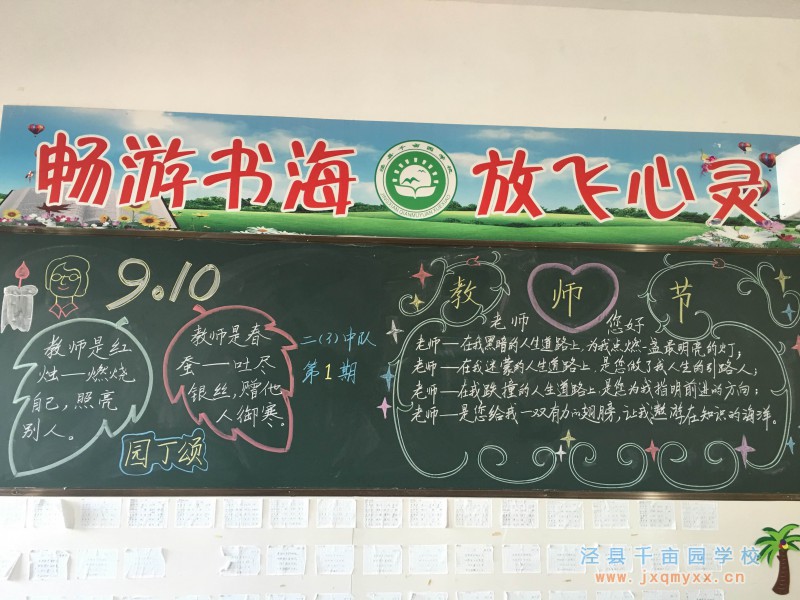 畅游书海 放飞心灵
泾县千亩园学校
9.10
教师是红
烛——燃烧
自己，照亮
别人。
教师是春
蚕——吐尽
银丝，赠他
人御寒。
园丁颂
二(3)中队
第1期
教师节
老师 您好
老师——在我黑暗的人生道路上，为我点燃一盏最明亮的灯；
老师——在我迷蒙的人生道路上，是您做了我人生的引路人；
老师——在我跌撞的人生道路上，是您为我指明前进的方向；
老师——是您给我一双有力的翅膀，让我遨游在知识的海洋。
泾县千亩园学校
www.jxqmyxx.cn